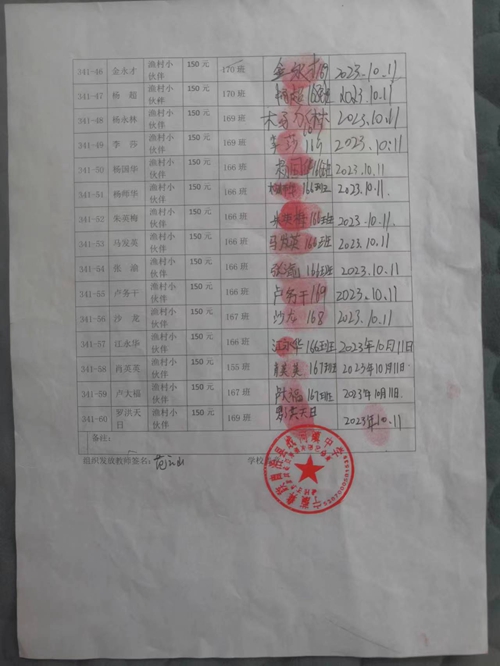 341-46 金永才 渔村小伙伴 150元 170班 2023.10.11
341-47 杨超 渔村小伙伴 150元 170班 杨超 168班 2023.10.11
341-48 杨永林 渔村小伙伴 150元 169班 2023.10.11
341-49 李莎 渔村小伙伴 150元 169班 李莎 2023.10.11
341-50 杨国华 渔村小伙伴 150元 166班 2023.10.11
341-51 杨师华 渔村小伙伴 150元 166班 166班 2023.10.11
341-52 朱英梅 渔村小伙伴 150元 166班 朱英梅 166班 2023.10.11
341-53 马发英 渔村小伙伴 150元 166班 马发英 166班 2023.10.11
341-54 张渝 渔村小伙伴 150元 166班 张渝 166班 2023.10.11
341-55 卢务干 渔村小伙伴 150元 166班 卢务干 169 2023.10.11
341-56 沙龙 渔村小伙伴 150元 167班 沙龙 168 2023.10.11
341-57 江永华 渔村小伙伴 150元 166班 江永华 166班 2023年10月11日
341-58 肖英英 渔村小伙伴 150元 155班 肖英英 167班 2023年10月11日
341-59 卢大福 渔村小伙伴 150元 167班 167班 2023年10月11日
341-60 罗洪天日 渔村小伙伴 150元 169班 2023年10.11
备注:
组织发放教师签名: 学校